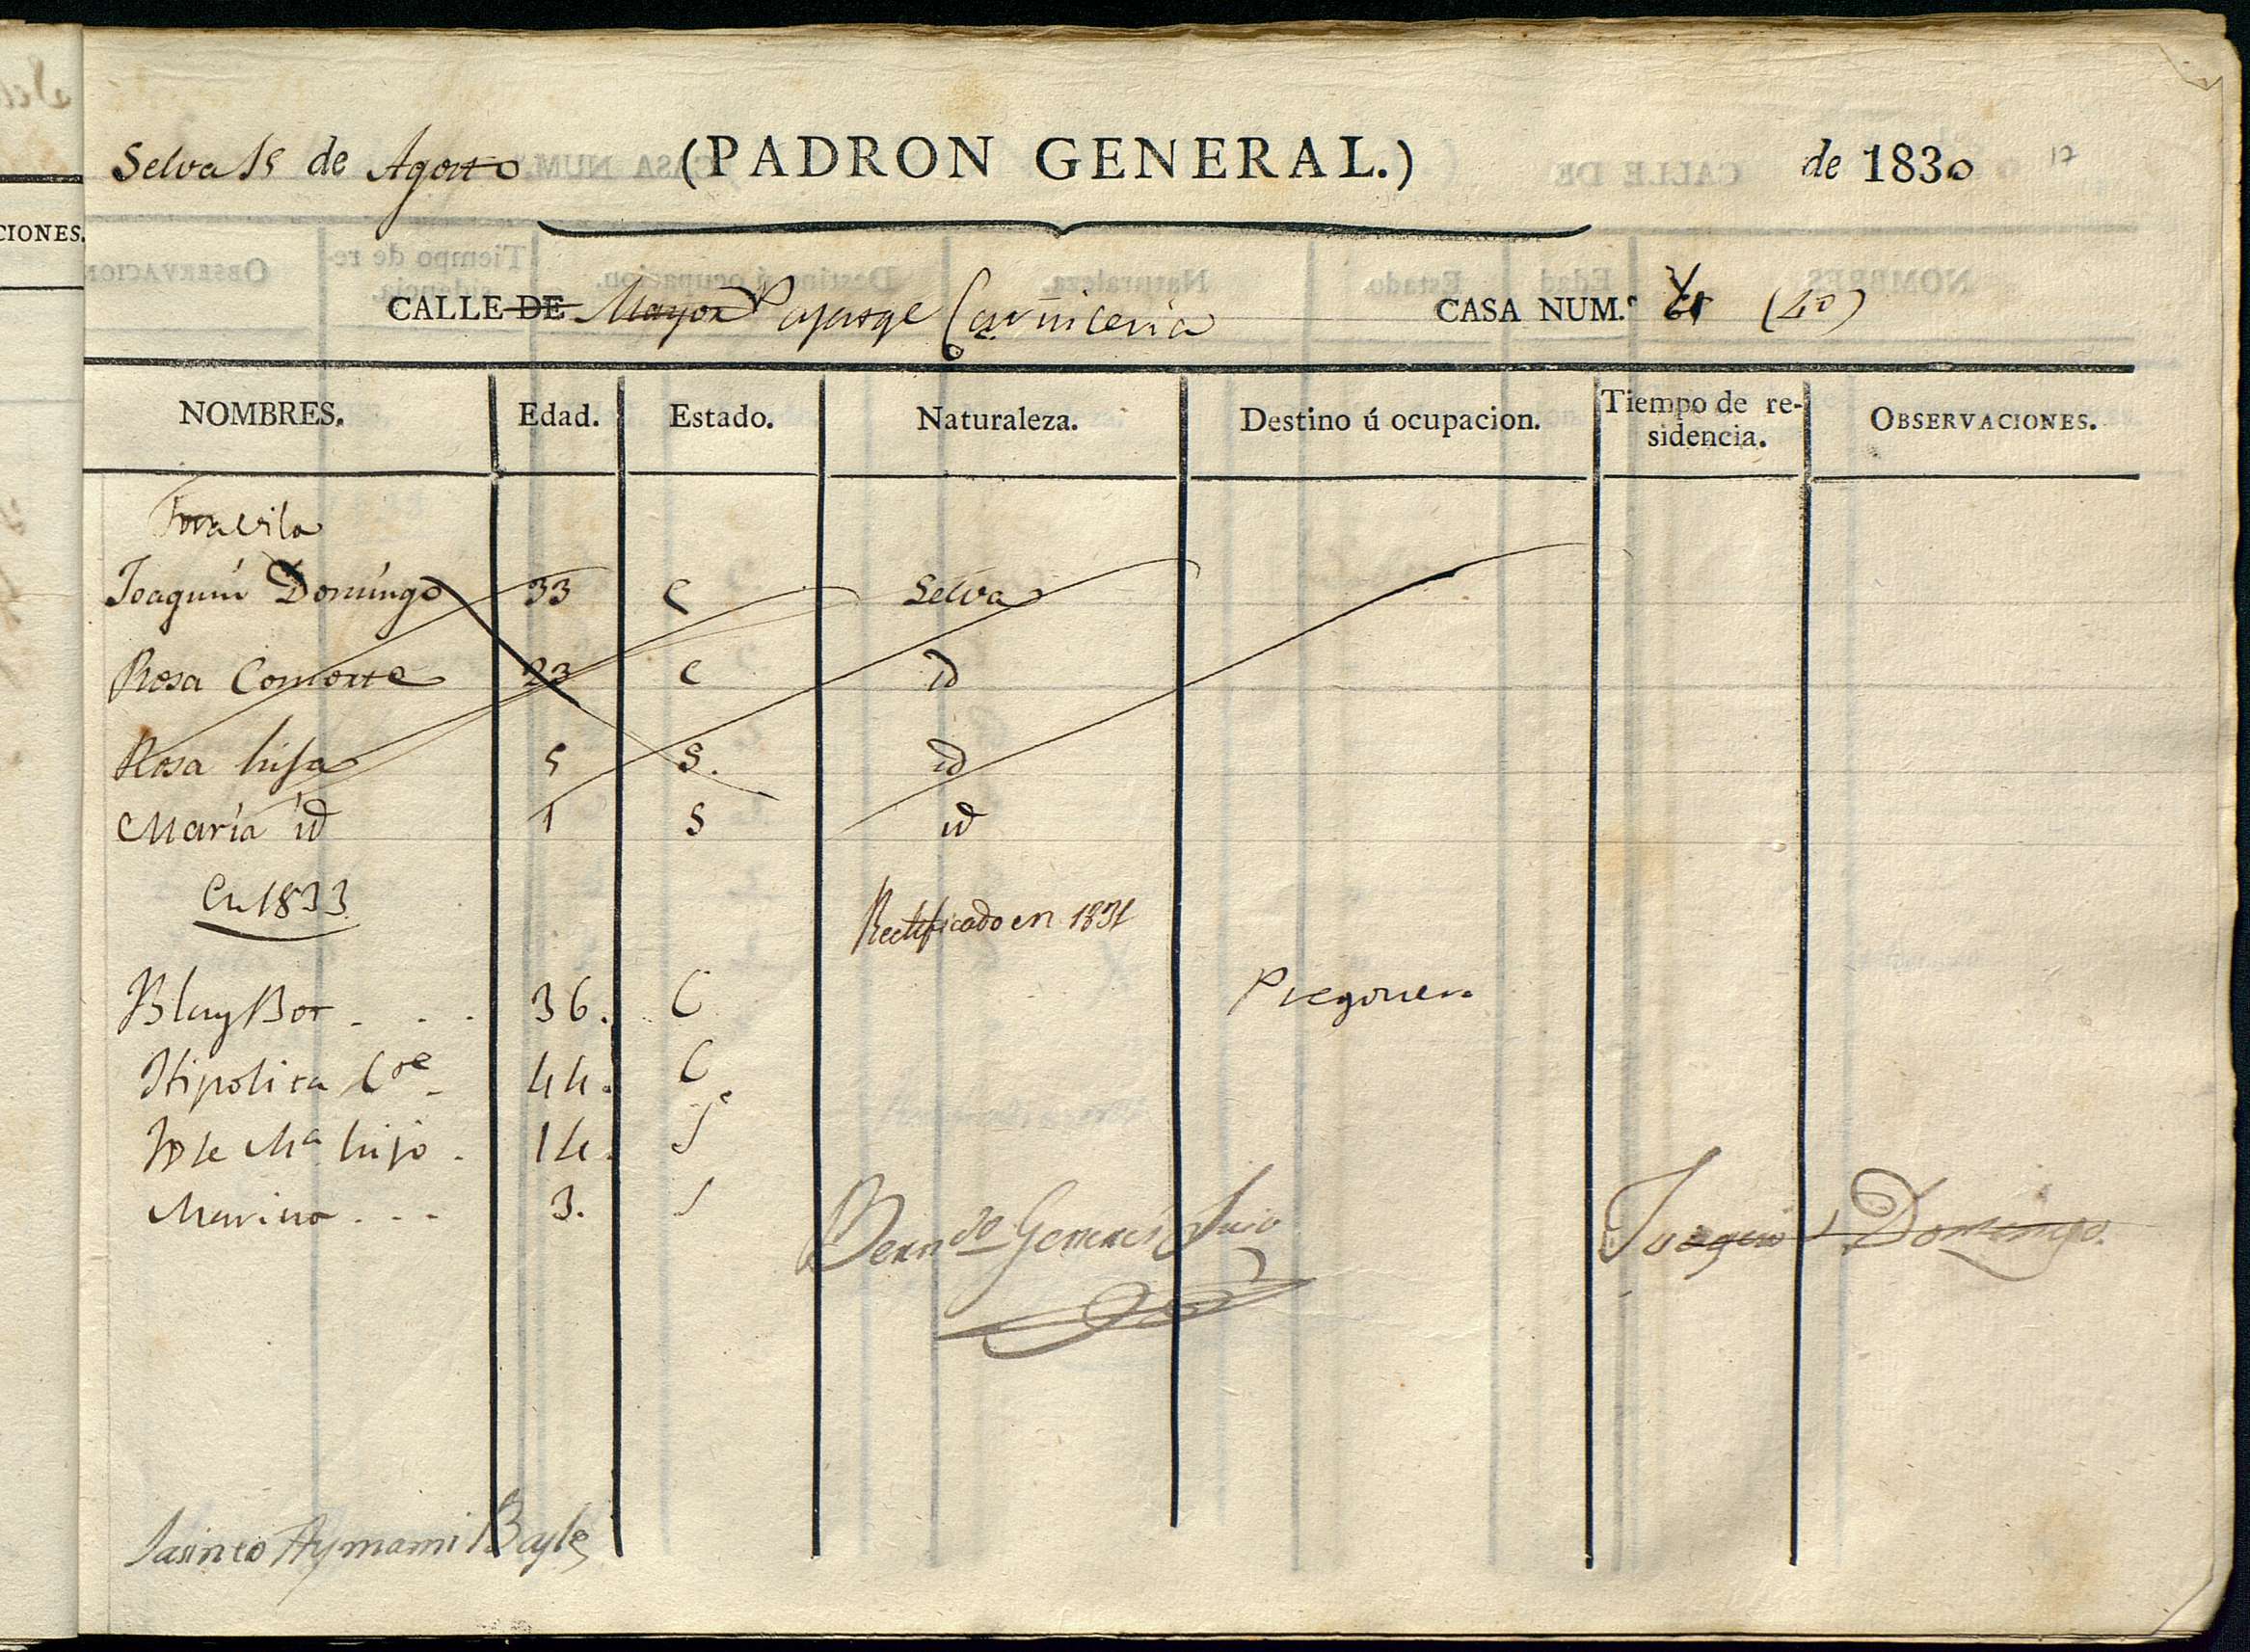 CIONES.
Selva 15 de Agosto (PADRON GENERAL.) de 1830 17
CALLE DE Mayor Pasatge Carniceria CASA NUM.º (40)
NOMBRES. Edad. Estado. Naturaleza. Destino ú ocupacion. Tiempo de re-
sidencia. OBSERVACIONES.
Joaquin Domingo 33 C Selva
Rosa Consorte 23 C id
Rosa hija 5 S. id
María id 1 S id
En 1833
Rectificado en 1831
Blay Bor . . . 36. C Pregonero
Hipolita Cte. 44. C
Jose Ma hijo . 14. S
Marina . . . 3. S
Berndo Joaquin Domingo.
Jasinto Aymami Bayle